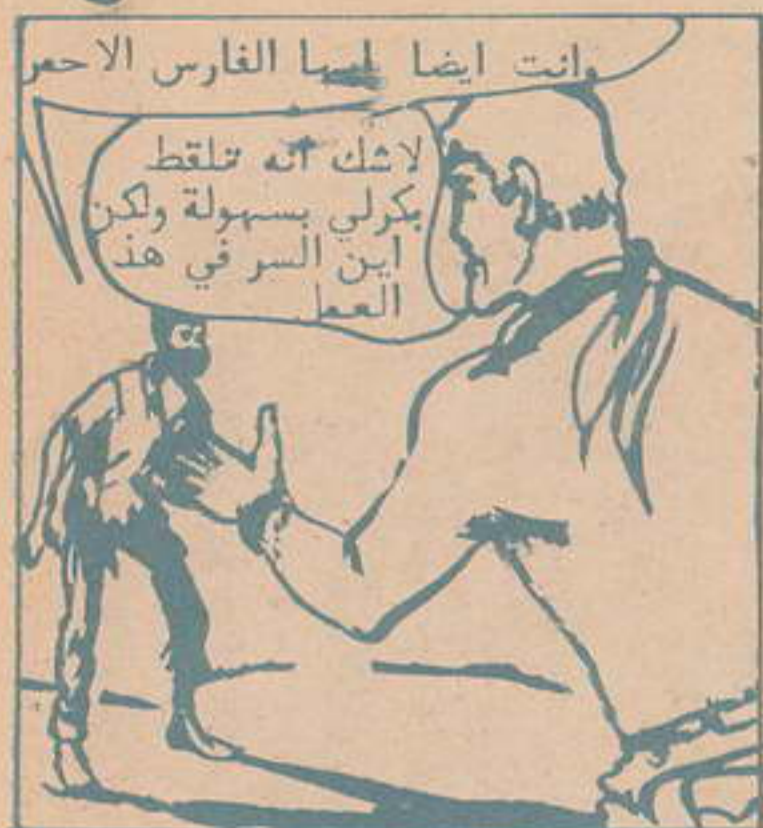 وانت ايضا ايها الفارس الاحمر
لاشك انه تلقط
بكرلي بسهولة ولكن
اين السر في هذ
العمل